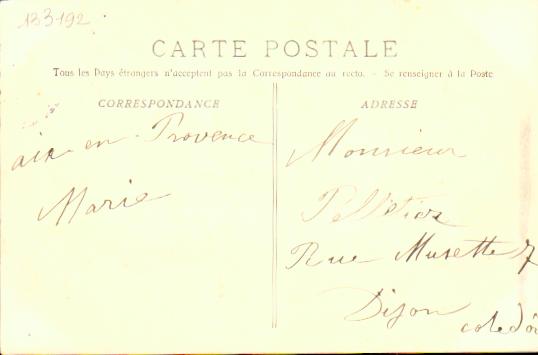 133-192
CARTE POSTALE
Tous les Pays étrangers n'acceptent pas la Correspondance au recto. - Se renseigner à la Poste
CORRESPONDANCE
aix-en-Provence
Marie
ADRESSE
Monsieur
Pelletier
Rue Musette 7
Dijon
cotedôr